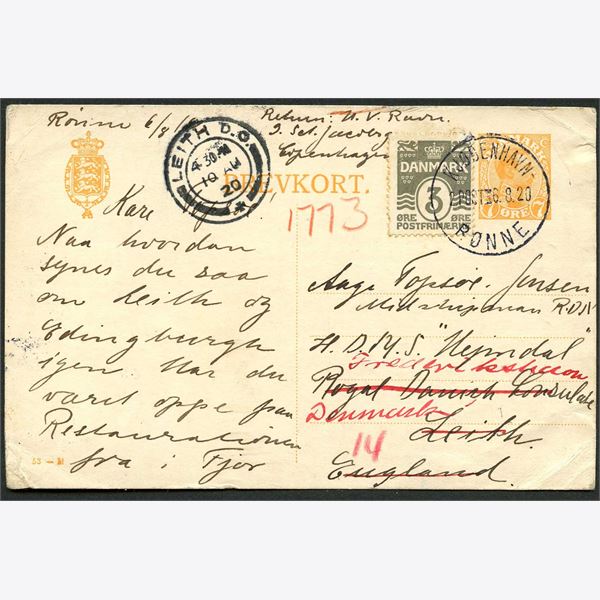 Rønne 6/8
Return: N. V. Ravn.
2. Set. Jacobs
Copenhagen
LEITH D.O.
4.30 PM
10
20
BREVKORT.
DANMARK
3
ØRE ØRE
POSTFRIMÆRKE
KØBENHAVN-
POST 6.8.20
RØNNE
7 ØRE 7
1773
Kære
Naa hvordan
synes du saa
om Leith og
Edingburgh
igen. Har du
været oppe paa
Restaurationen
fra i Fjor
Aage Topsøe-Jensen
Midshipman R.D.N
H. D. M. S. "Hejmdal"
Frederikshavn
Royal Danish Consulate
Denmark
Leith.
14
England.
53 - M